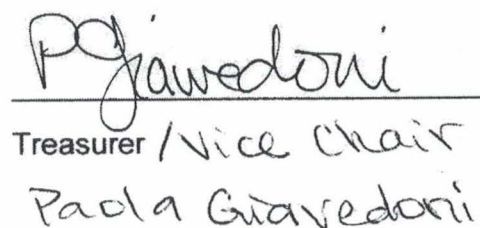 PGiavedoni
Treasurer / Vice Chair
Paola Giavedoni